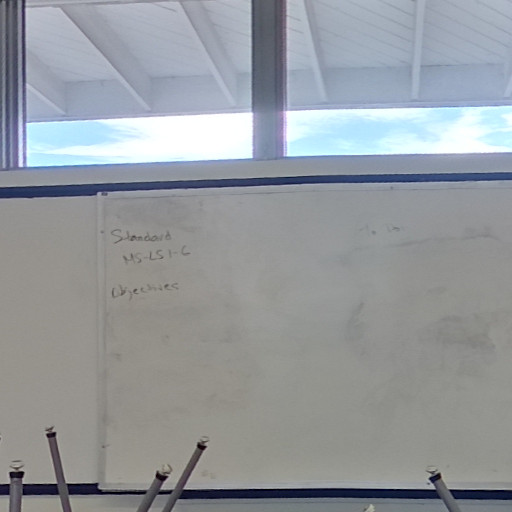 Standard
MS-LS1-6
Objectives